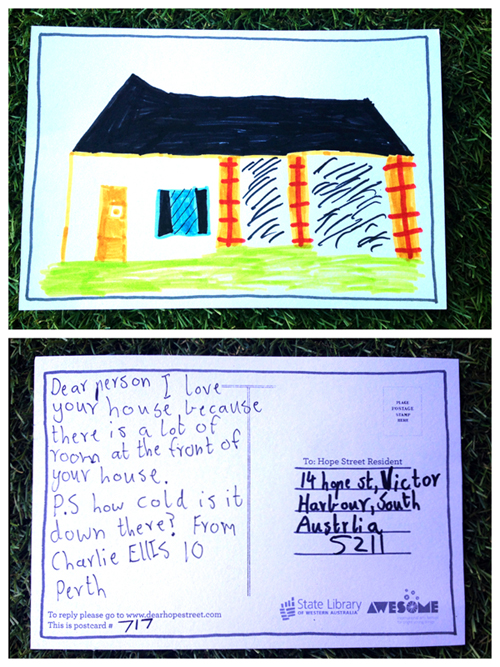 Dear person I love
your house because
there is a lot of
room at the front of
your house.
P.S how cold is it
down there? From
Charlie EllIS 10
Perth
To reply please go to www.dearhopestreet.com
This is postcard # 717
PLACE
POSTAGE
STAMP
HERE
To: Hope Street Resident
14 hope st, Victor
Harbour, South
Austrlia
5211
State Library
OF WESTERN AUSTRALIA
AWESOME